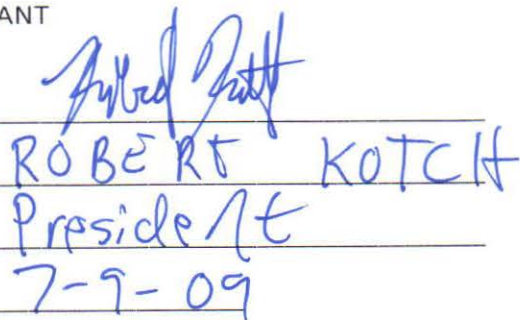 ANT
ROBERT KOTCH
President
7-9-09